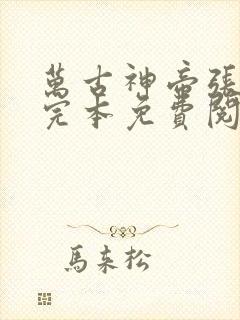 萬古神帝張
完本免費閱
馬來松